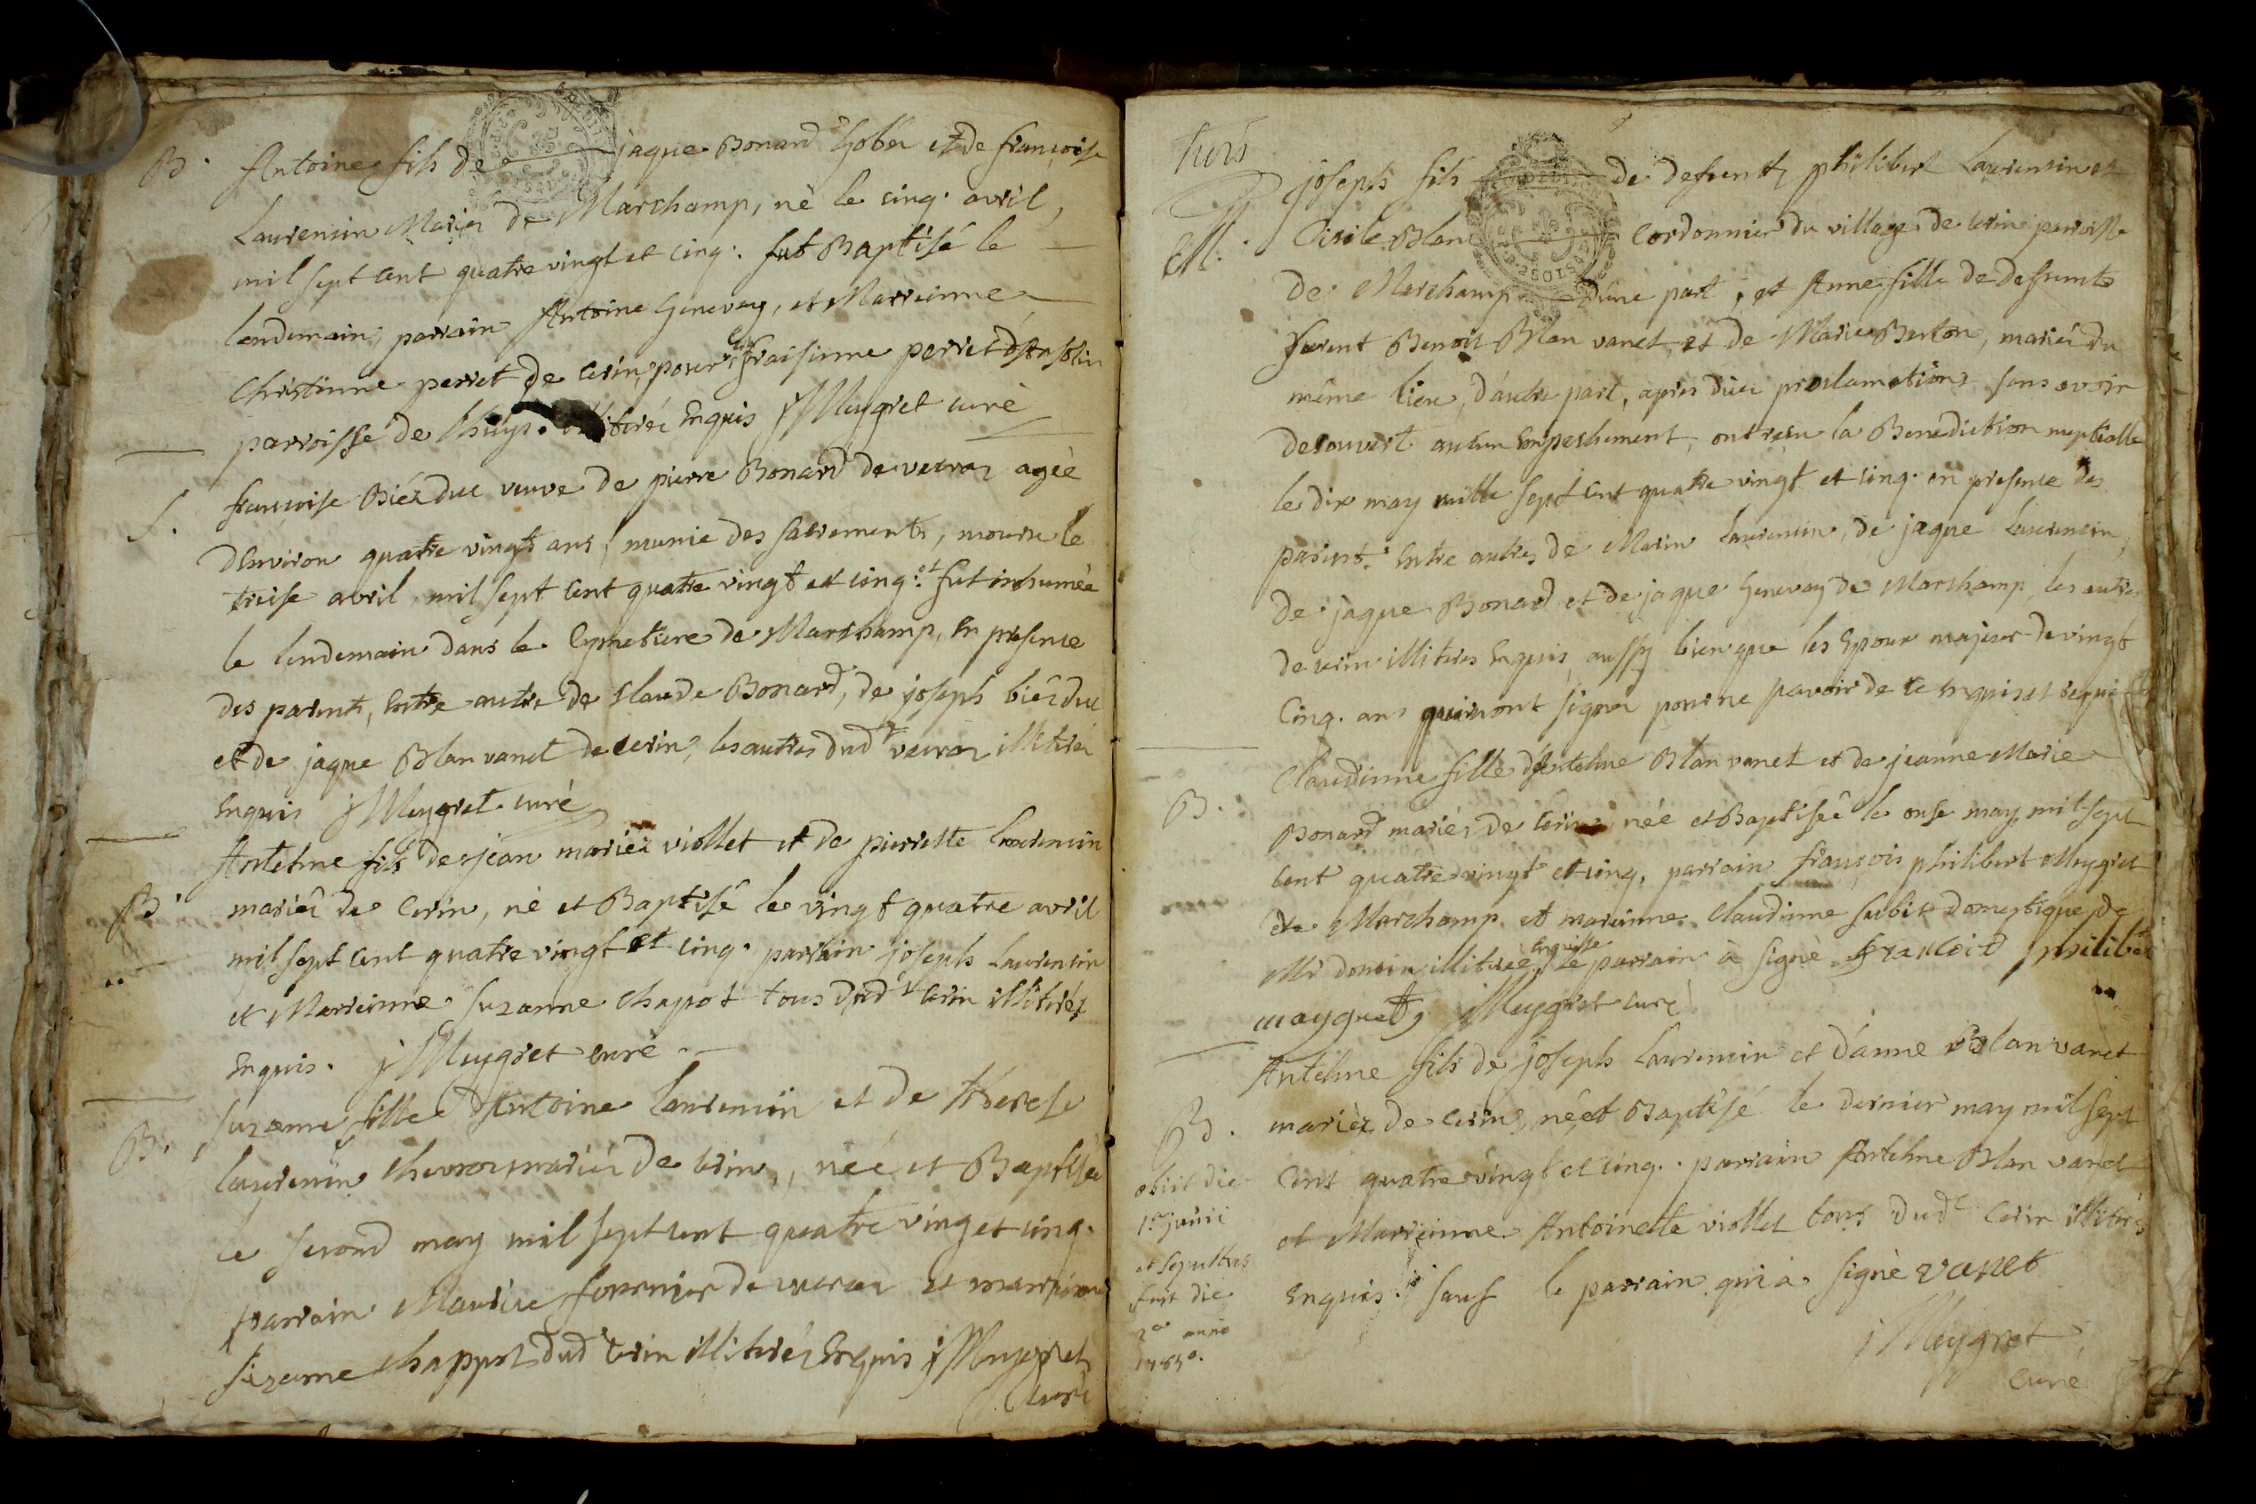 B. Antoine fils de jaque Bonard Gober et de francoise
Laurensin Mariez de Marchamp, né le cinq. avril,
mil sept cent quatre vingt et cinq. fut Baptisé le
lendemain, parrain Antoine Genevay, et Marrienne
Christinne perret de Cerin, pour fraisinne perret
parroisse de lhuys. illitirés Enquis j Meygret curé
S. francoise Biézduc veuve de pierre Bonard de veuraz agée
d'Environ quatre vingts ans, munie des sacrements, mouru le
treise avril mil sept cent quatre vingt et cinq. et fut inhumée
le lendemain dans le Cymetiere de Marchamp, En presence
des parents, Entre autre de Claude Bonard, de joseph biézduc
et de jaque Blan vanet de Cerin, les autres dudt veuraz illitirés
Enquis j Meygret curé
B. Antelme fils de jean mariéz viollet et de pierrette Laurensin
mariéz de Cerin, né et Baptisé le vingt quatre avril
mil sept cent quatre vingt et cinq. parrain joseph Laurensin
et Marrienne suzanne Chapot tous dudt Cerin illitirés
Enquis. j Meygret curé
B. suzanne fille d'Antoine Laurensin et de therese
Laurensin mariéz de Cerin, née et Baptisée
le second may mil sept cent quatre ving et cinq.
parrain Maurice fournier de veuraz et marrienne
suzanne Chappot dudt Cerin illitirés Enquis j Meygret
Curé
M. joseph fils de defunts philibert Laurensin et
Cicile Blan Cordonnier du village de Cerin parroisse
de Marchamp d'une part, et Anne fille de defunts
furent Benoit Blan vanet, et de Marie Berton, mariéz du
même lieu, d'autre part, apres duës proclamations sans avoir
decouvert aucun Empeschement, ont reçu la Benediction nuptialle
le dix may mille sept cent quatre vingt et cinq. en presence des
parents. Entre autres de Marin Laurensin, de jaque Laurensin,
de jaque Bonard et de jaque Genevay de Marchamp, les autres
de Cerin illitirés Enquis aussy bien que les Epoux majeur de vingt
Cinq. ans qui n'ont signer pour ne pavoir de ce Enquis et requis
B. Claudinne fille d'Antelme Blan vanet et de jeanne Marie
Bonard mariéz de Cerin, née et Baptisée le onse may mil sept
cent quatre vingt et cinq, parrain françois philibert Meygret
de Marchamp et marienne Claudinne subit domestique de
Mr donsin illitirée Enquise le parrain à signé francois philibert
mayguet, j Meygret curé
B. Antelme fils de joseph Laurensin et d'anne Blan vanet
mariéz de Cerin, né et Baptisé le dernier may mil sept
Cent quatre vingt et cinq. parrain Antelme Blan vanet
et Marrienne Antoinette viollet tous dudt Cerin illitirés
Enquis. sauf le parrain qui a signé vanet
j Meygret
Curé
obiit die
1a junii
et sepultus
fuit die
2a anno
1785o.